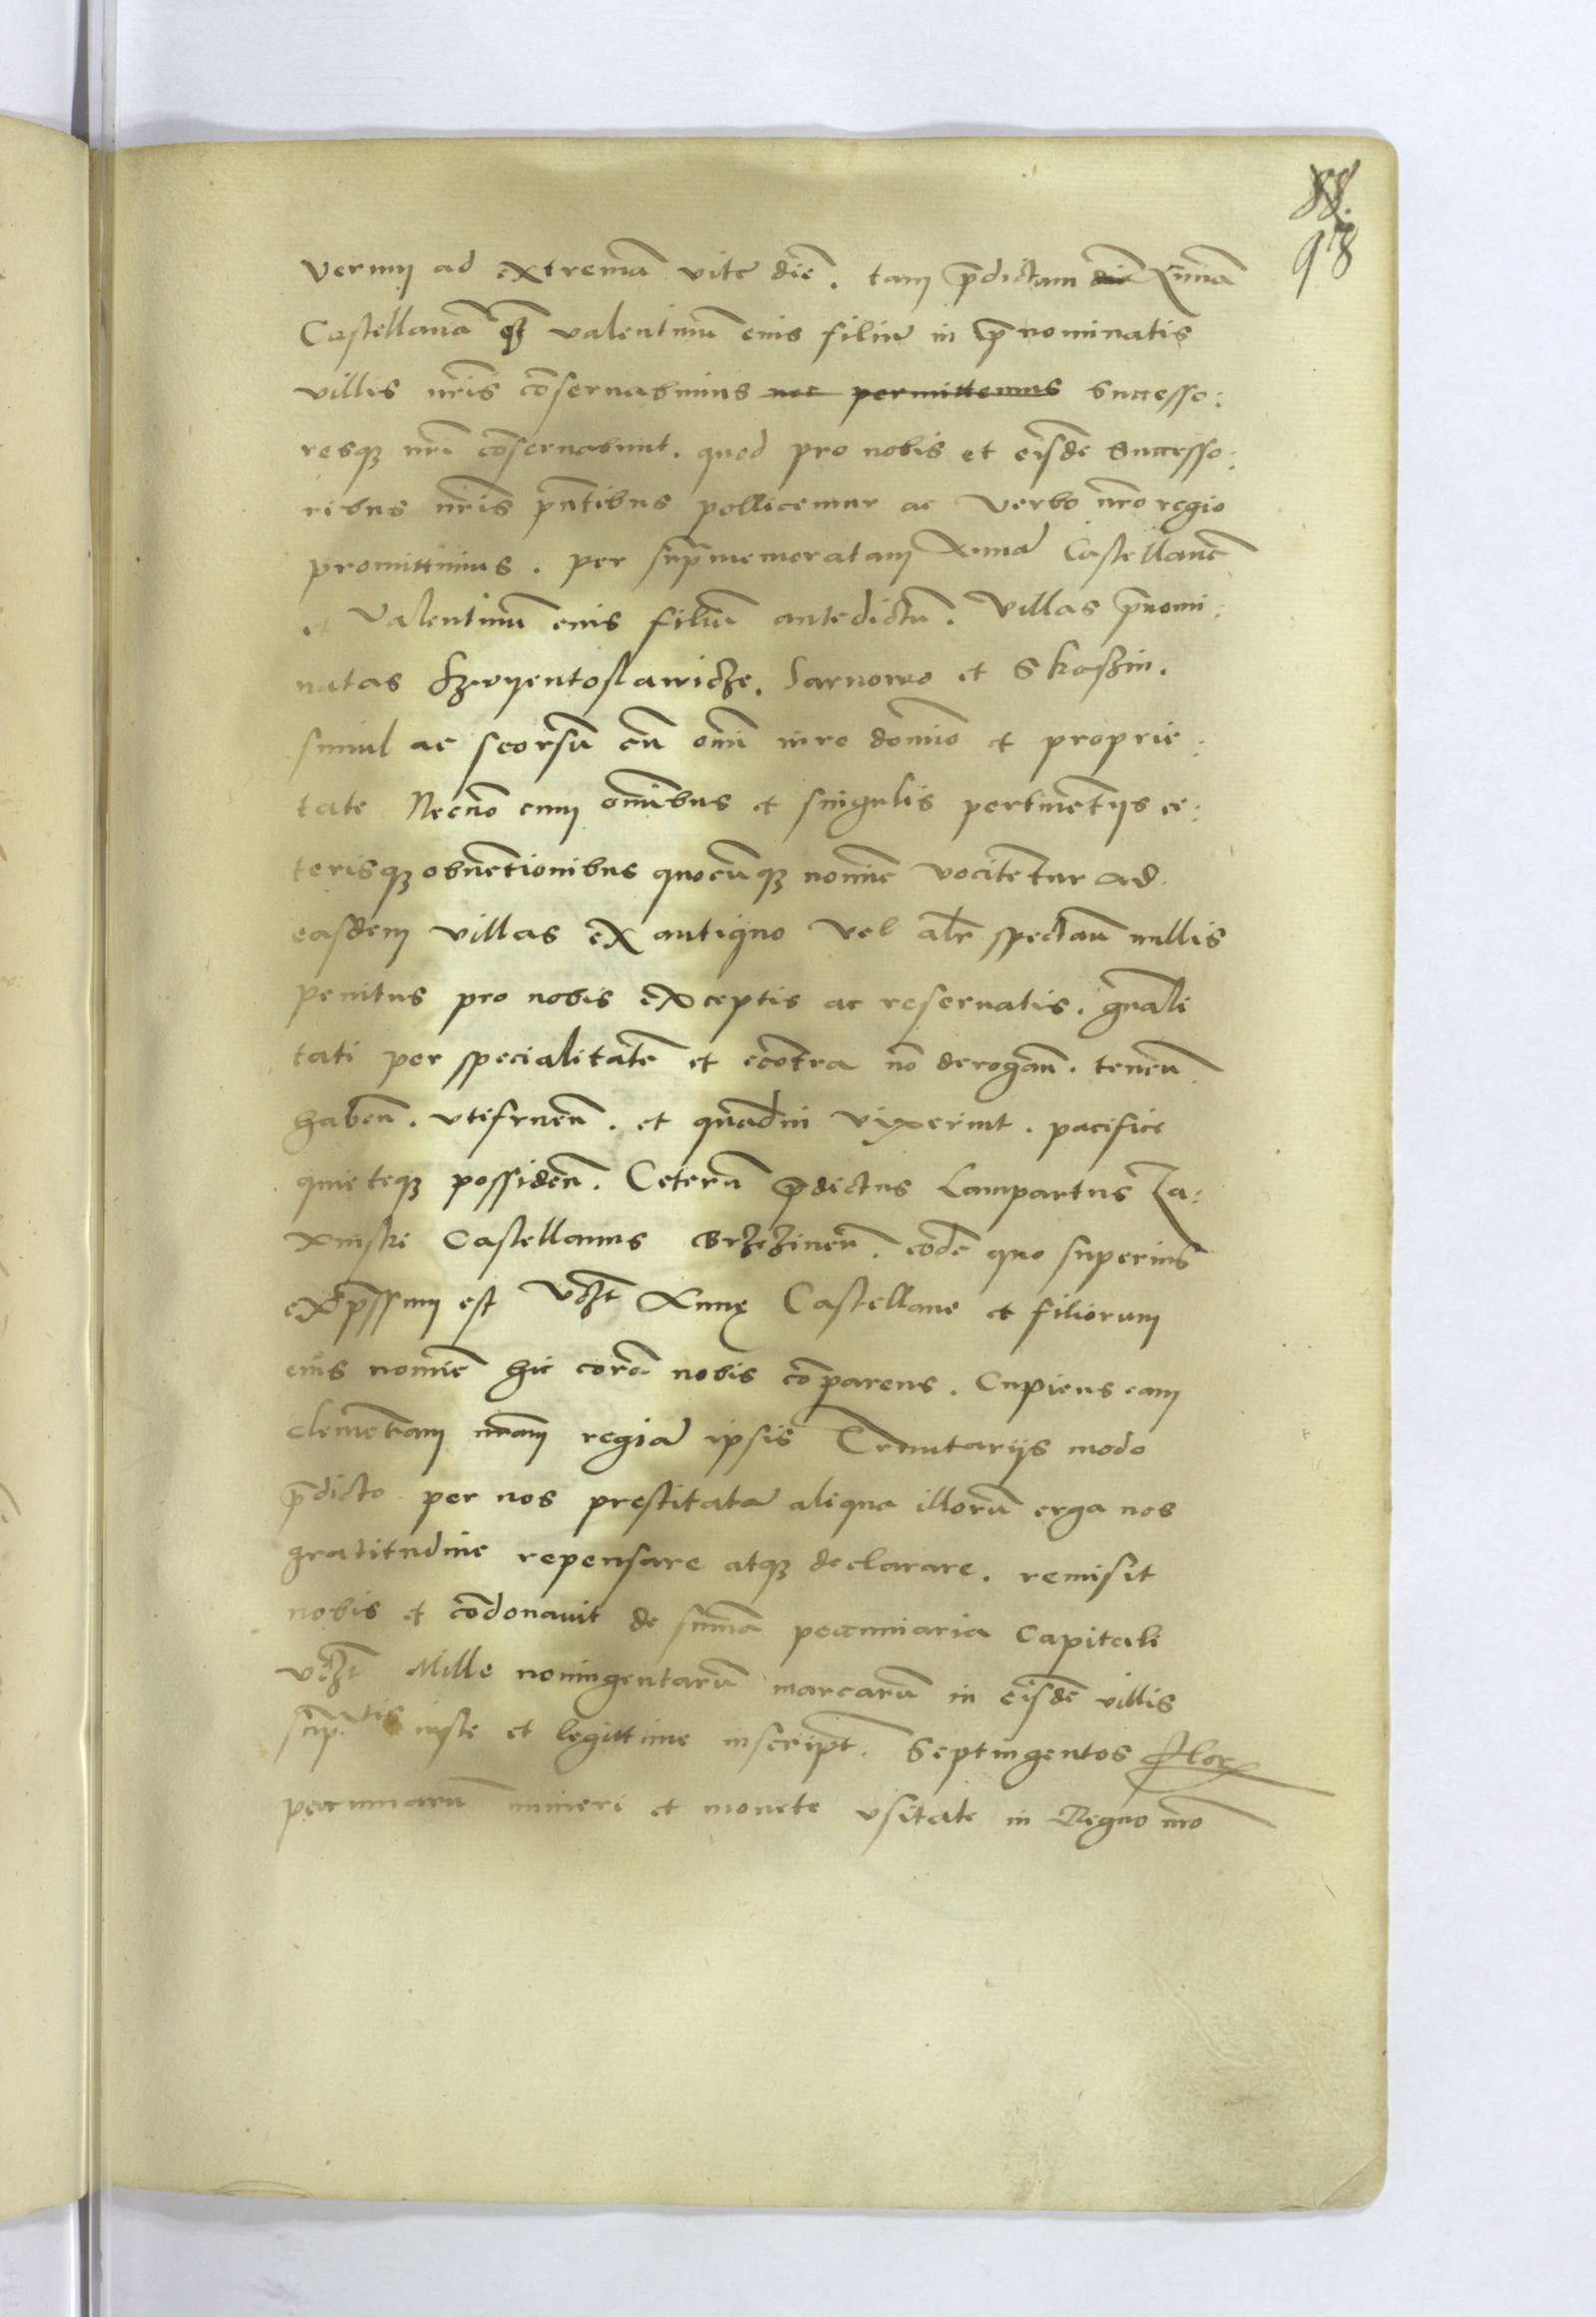 88.
98
Verum ad extremū vite diē. tam p̄dictam Annā
Castellanā q̄ȝ valentinū eius filiū in p̄nominatis
villis nr̄is cōseruabimus nec permittemus Successo:
resqȝ nr̄i cōseruabunt. quod pro nobis et eisdē Successo:
ribus nr̄is pn̄tibus pollicemur ac verbo nr̄o regio
promittimus. per sup̄memoratam Annā Castellanā
et Valentinū eius filiū antedictū. Villas p̄nomi:
natas Szvyentoslawicze. Sarnowo et Skaszin.
simul ac seorsū cū om̄i iure domīo et proprie:
tate Necnō cum om̄ibus et singulis pertinētijs ce:
terisqȝ obuētionibus quocūqȝ nomīe vocitētur ad
easdem villas ex antiquo vel alr̄ spectan̄ nullis
penitus pro nobis exceptis ac reseruatis. gn̄ali
tati per specialitatē et ecōtra nō derogan̄. tenen̄
haben̄. vtifruen̄. et quādiu vixerint. pacifice
quieteqȝ possiden̄. Ceterū p̄dictus Lampartus Za:
xinski Castellanus Brzezinen̄. eodē quo superius
exp̄ssum est vcȝt Annę Castellane et filiorum
eius nomīe hic corā nobis cōparens. Cupiens eam
clemētiam nr̄am regiā ipsis Tenutarijs modo
p̄dicto per nos prestitatā aliqua illorū erga nos
gratitudine repensare atqȝ declarare. remisit
nobis et cōdonauit de sūma pecuniaria Capitali
vcȝt Mille noningentarū marcarū in eisdē villis
sup̄.tis iuste et legittime inscript̄. Septingentos flor
pecuniarū numeri et monete vsitate in Regno nr̄o